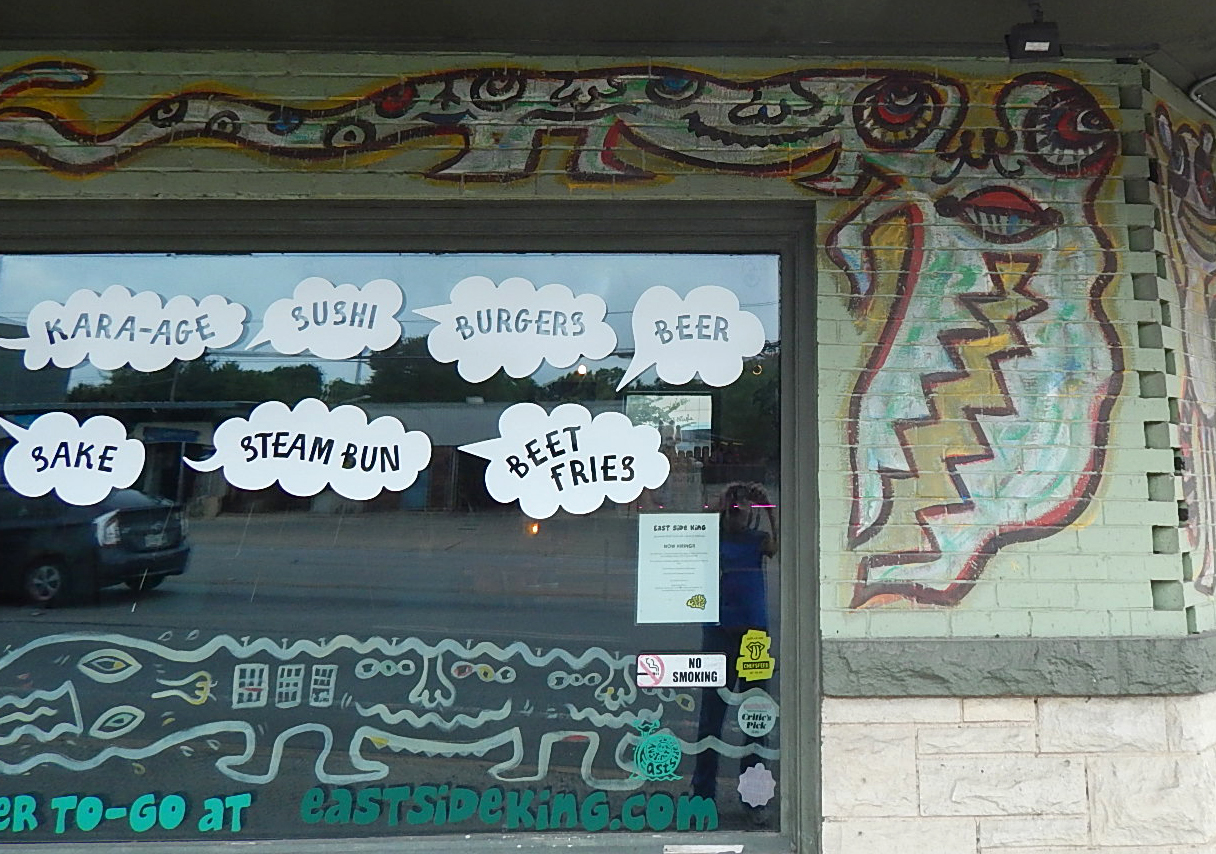 KARA-AGE
SUSHI
BURGERS
BEER
SAKE
STEAM BUN
BEET
FRIES
EAST SIDE KING
NOW HIRING
NO
SMOKING
CHEFSFEED
Critic's
Pick
ER TO-GO AT eastsideking.com